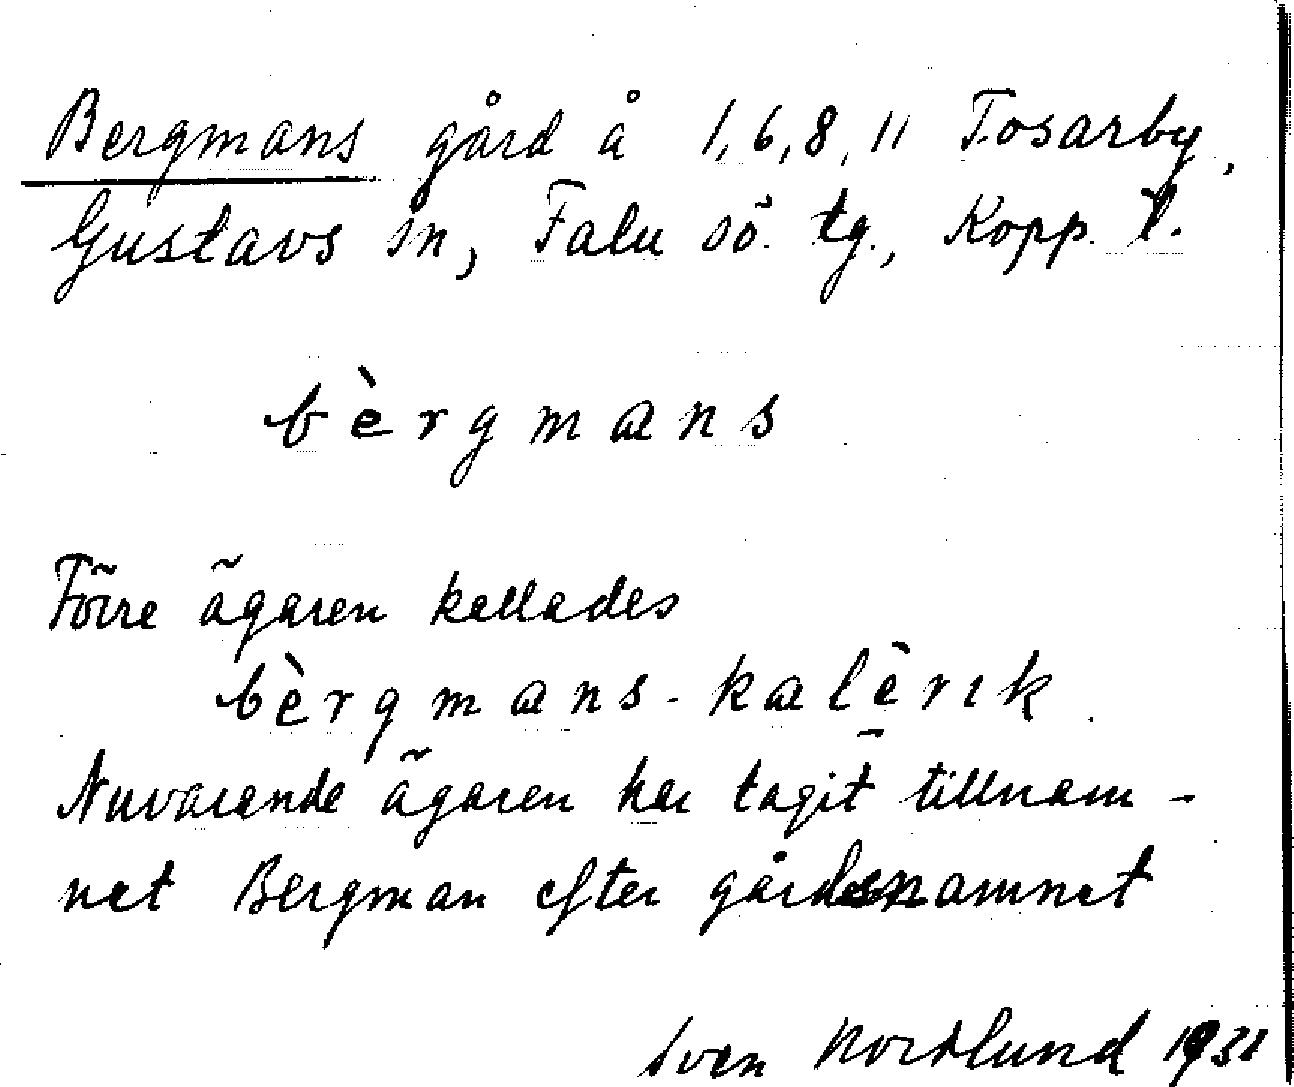 Bergmans gård å 1, 6, 8, 11 Tosarby,
Gustavs sn, Falu sö. tg., Kopp. l.
bèrgmans
Förre ägaren kallades
bèrgmans-kalèrık.
Nuvarande ägaren har tagit tillnam-
net Bergman efter gårdsnamnet
Sven Nordlund 1931